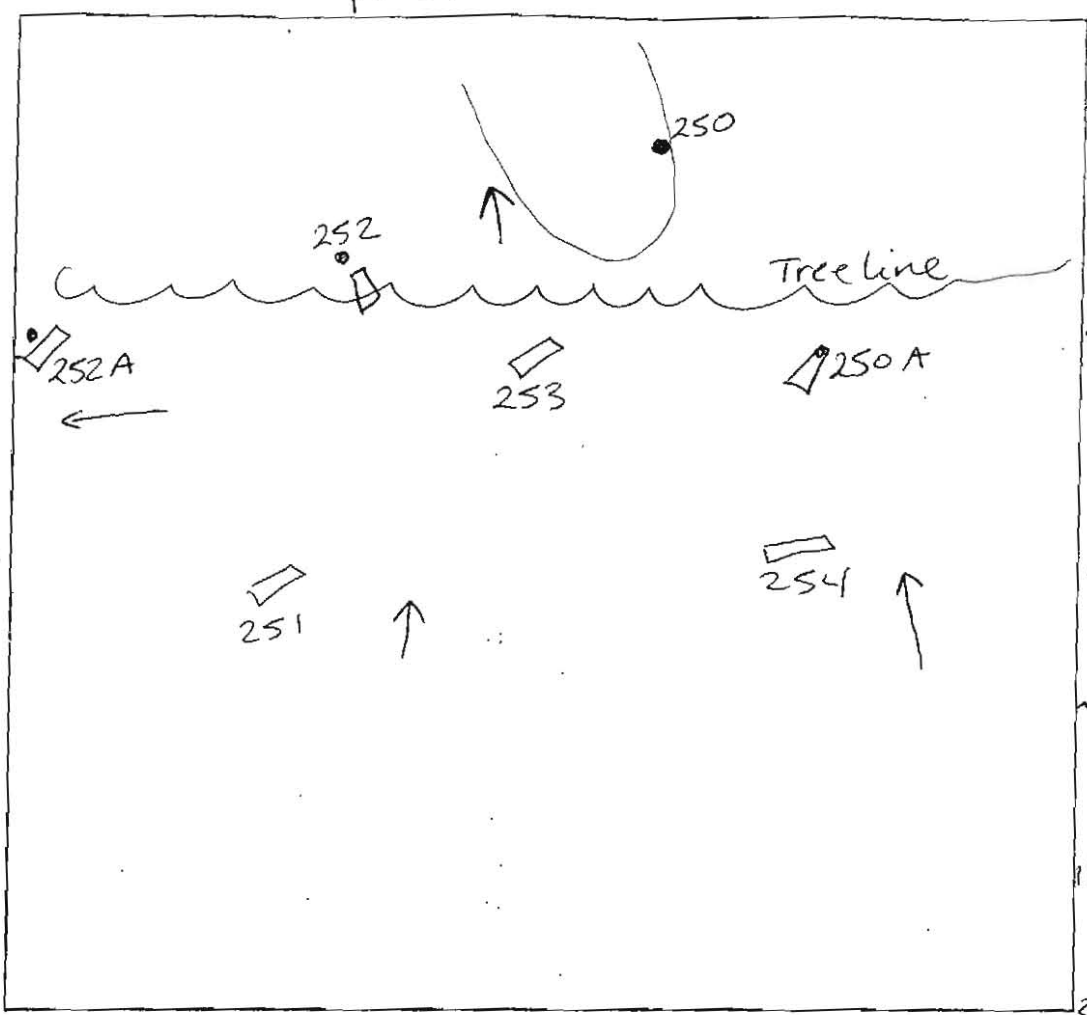 250
252
Treeline
252A
253
250A
254
251